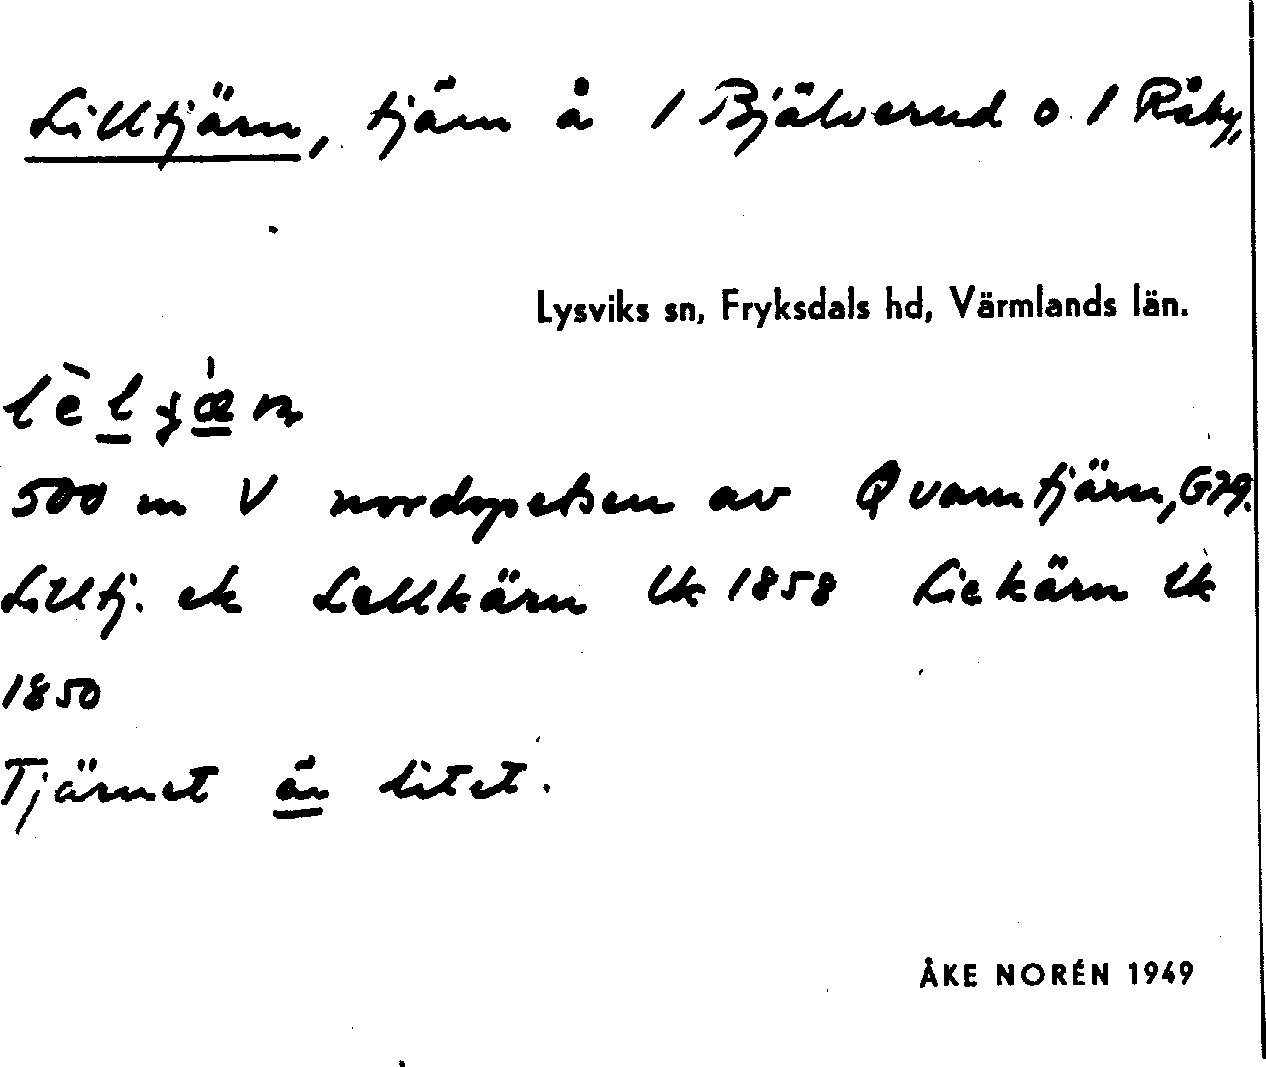 Lilltjärn, tjärn å 1 Bjälverud o. 1 Råby,
Lysviks sn, Fryksdals hd, Värmlands län.
500 m V nordspetsen av Qvarntjärn, G79.
Lilltj. ek Lellkärn lk 1858 Liekärn lk
1850
Tjärnet är litet.
ÅKE NORÉN 1949